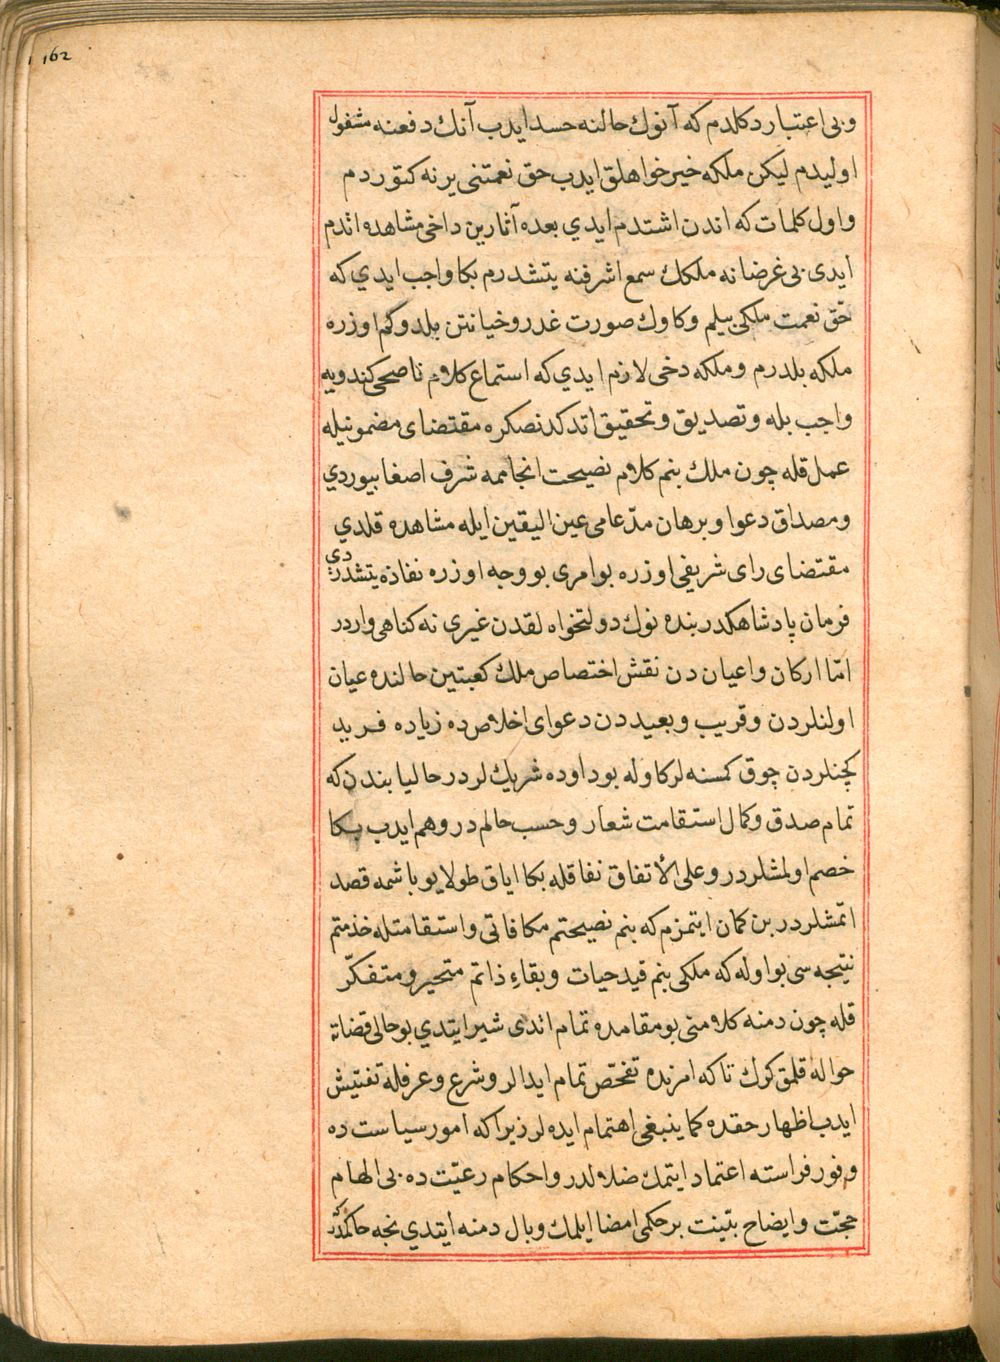 162
وبی اعتبار دکلدم که آنوك حالنه حسد ایدب آنك دفعنه مشغول
اولیدم لیکن ملکه خیر خواهلق ایدب حق نعمتنی یرنه کتوردم
واول کلمات که اندن اشتدم ایدي بعده آثارین داخی مشاهده اتدم
ایدی بی غرضانه ملکك سمع اشرفنه یتشدرم بکا واجب ایدي که
حق نعمت ملکی بیلم وکاوك صورت غدر وخیانتن بلدوکم اوزره
ملکه بلدرم وملکه دخی لازم ایدي که استماع کلام ناصحی کندویه
واجب بله وتصدیق وتحقیق اتدکدنصکره مقتضای مضمونیله
عمل قله چون ملك بنم کلام نصیحت انجاممه شرف اصغا بیوردي
ومصداق دعوا وبرهان مدعامی عین الیقین ایله مشاهده قلدي
مقتضای رای شریفی اوزره بو امری بو وجه اوزره نفاذه یتشدردي
فرمان پادشاهکدر بنده نوك دولتخواه لقدن غیری نه کناهی واردر
امّا ارکان واعیان دن نقش اختصاص ملك کعبتین حالنده عیان
اولنلردن وقریب وبعیددن دعوای اخلاص ده زیاده فرید
کچنلردن چوق کمسنه لر کاوله بوداوده شریك لردر حالیا بندن که
تمام صدق وکمال استقامت شعار وحسب حالم در وهم ایدب بکا
خصم اولمشلردر وعلی الأتفاق نفاقله بکا ایاق طولایو باشمه قصد
اتمشلردر بن کمان ایتمزم که بنم نصیحتم مکافاتی واستقامتله خذمتم
نتیجه سی بو اوله که ملکی بنم قید حیات وبقاء ذاتم متحیر ومتفکّر
قله چون دمنه کلامنی بو مقامده تمام اتدی شیر ایتدي بو حالی قضاته
حواله قلمق کرك تاکه امرنده تفحّص تمام ایدالر وشرع وعرفله تفتیش
ایدب اظهار حقده کما ینبغی اهتمام ایده لر زیرا که امور سیاست ده
وفور فراسته اعتماد ایتمك ضلالدر واحکام رعیّت ده بی الهام
حجّت وایضاح بیّنت بر حکمی امضا ایلمك وبال دمنه ایتدي نجه حاکمدر